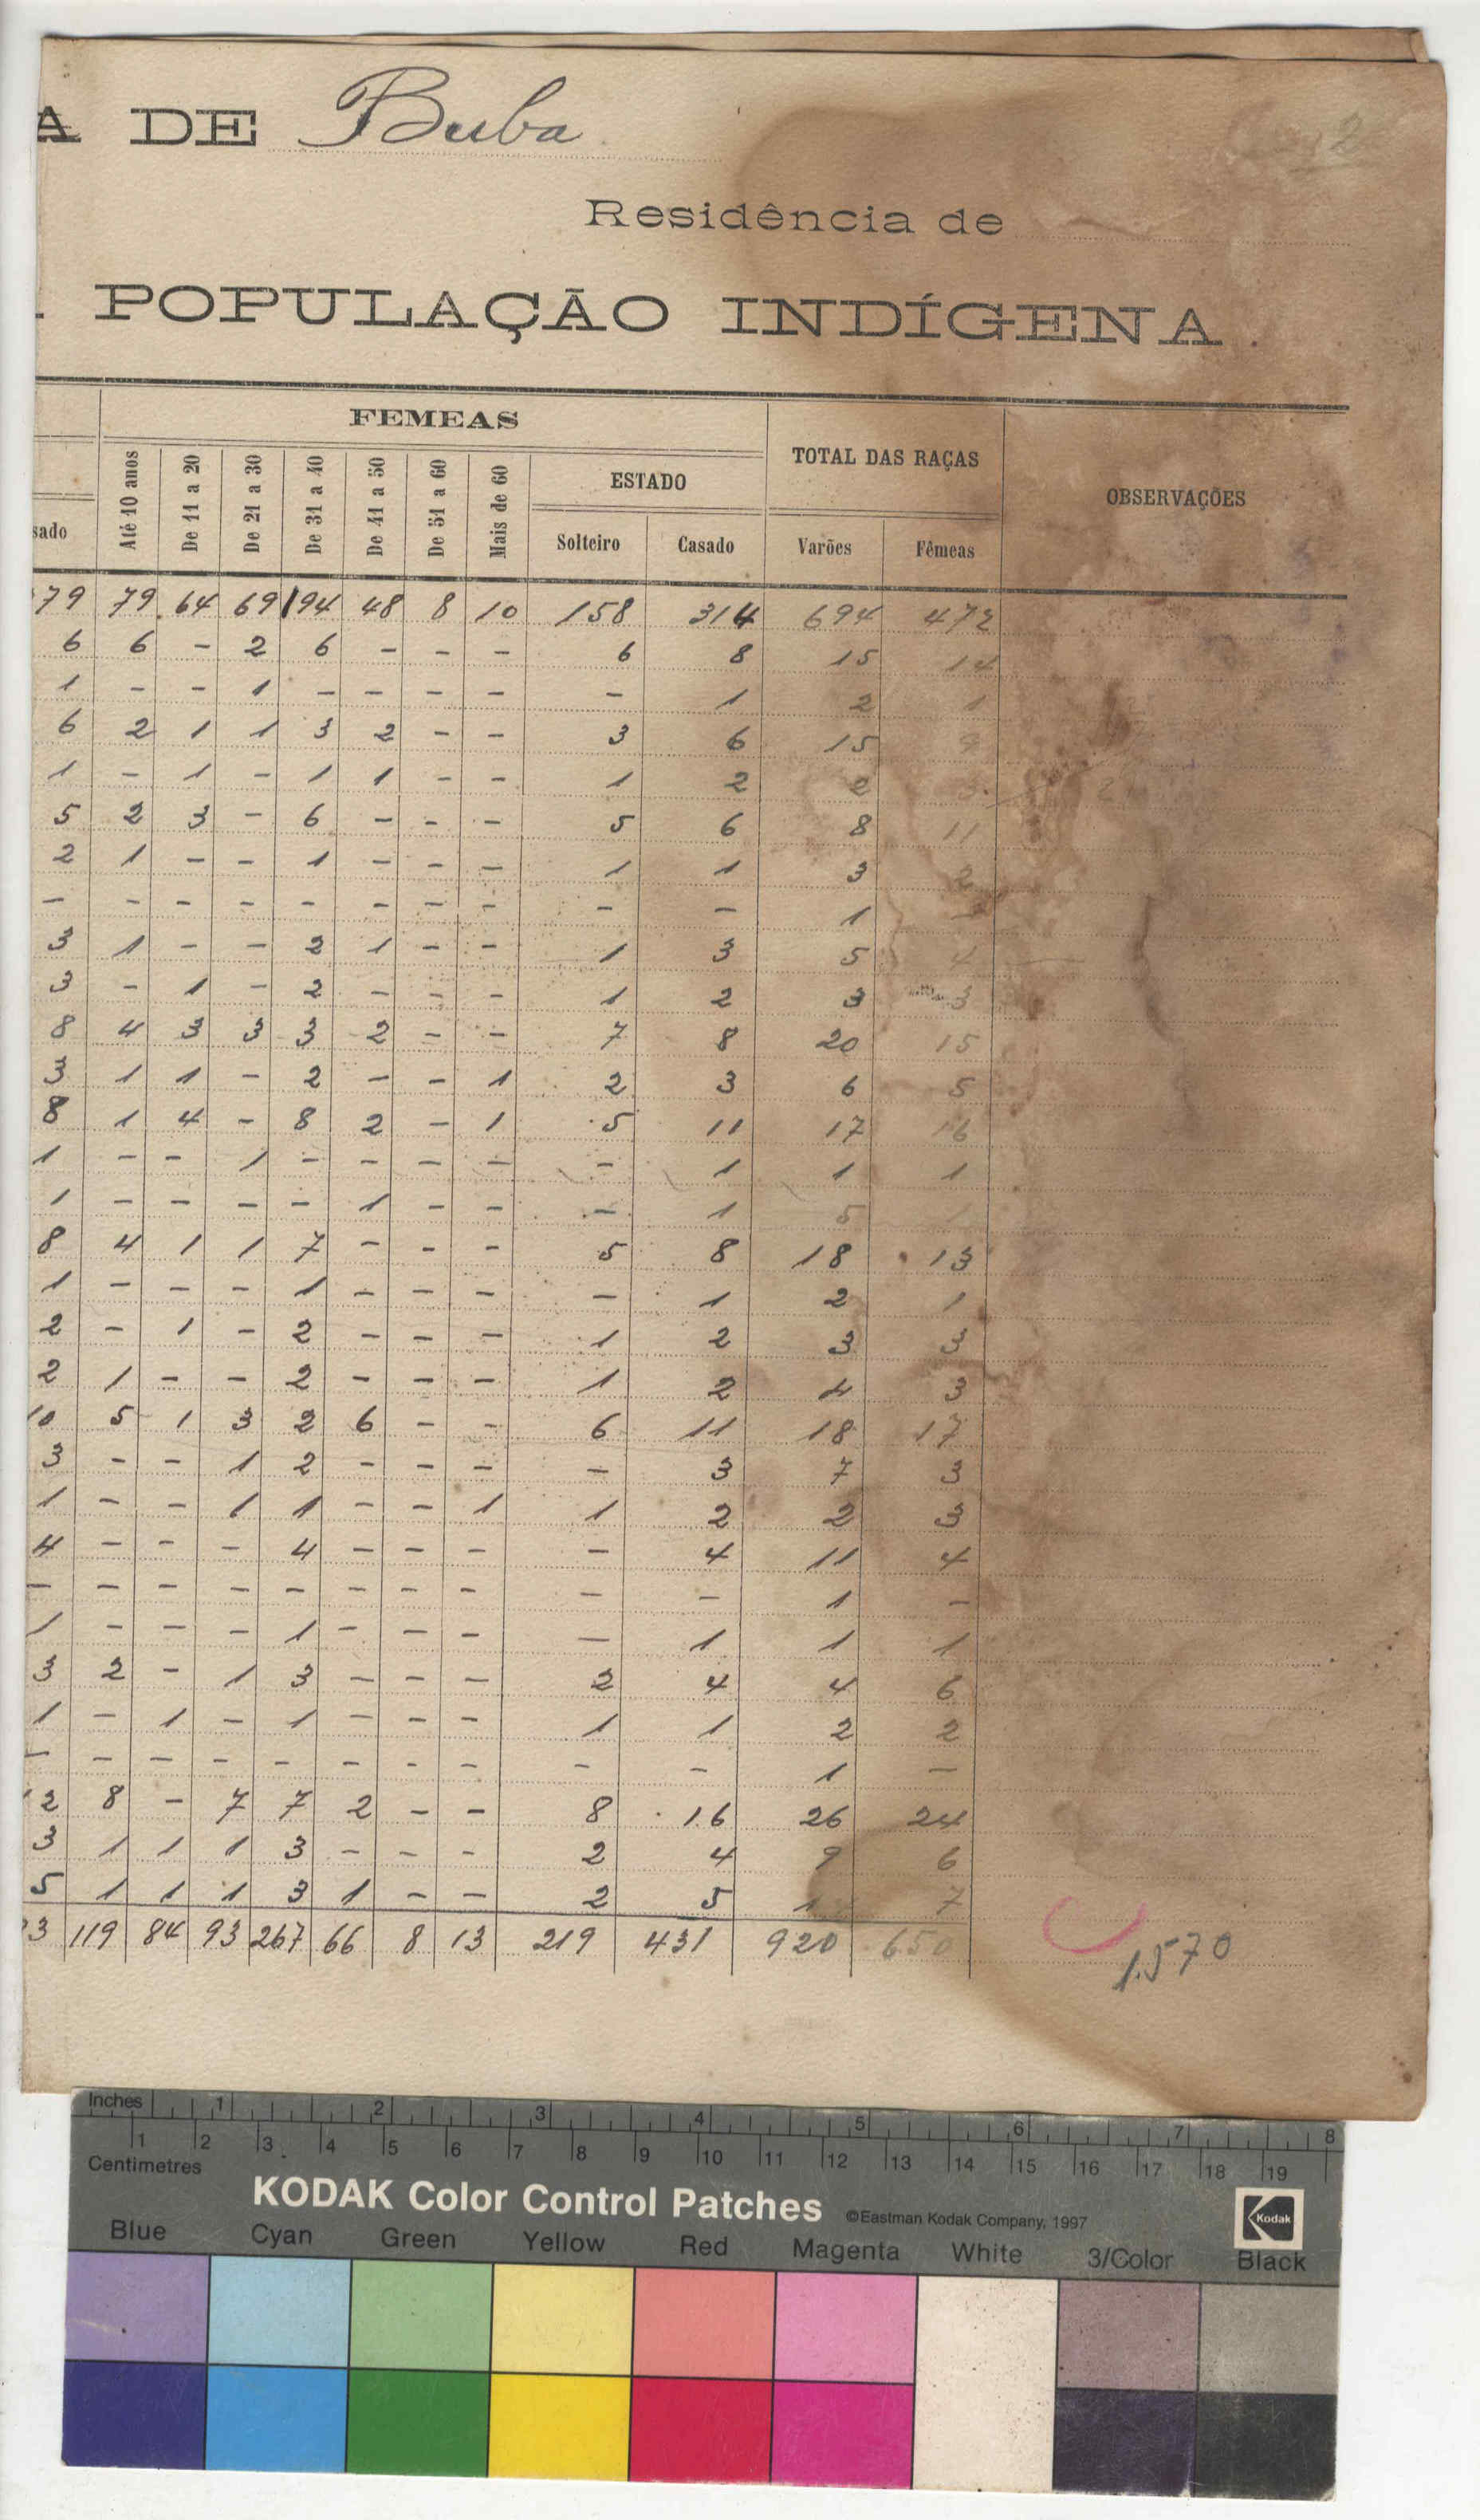 2
A DE Buba
Residência de
POPULAÇÃO INDÍGENA
FEMEAS
TOTAL DAS RAÇAS
OBSERVAÇÕES
ESTADO
sado Até 10 anos De 11 a 20 De 21 a 30 De 31 a 40 De 41 a 50 De 51 a 60 Mais de 60 Solteiro Casado Varões Fêmeas
79 79 64 69 194 48 8 10 158 314 694 472
6 6 - 2 6 - - - 6 8 15 14
1 - - 1 - - - - - 1 2 1
6 2 1 1 3 2 - - 3 6 15 9
1 - 1 - 1 1 - - 1 2 2 3
5 2 3 - 6 - - - 5 6 8 11
2 1 - - 1 - - - 1 1 3 2
- - - - - - - - - - 1 -
3 1 - - 2 1 - - 1 3 5 4
3 - 1 - 2 - - - 1 2 3 3
8 4 3 3 3 2 - - 7 8 20 15
3 1 1 - 2 - - 1 2 3 6 5
8 1 4 - 8 2 - 1 5 11 17 16
1 - - 1 - - - - - 1 1 1
1 - - - - 1 - - - 1 5 1
8 4 1 1 7 - - - 5 8 18 13
1 - - - 1 - - - - 1 2 1
2 - 1 - 2 - - - 1 2 3 3
2 1 - - 2 - - - 1 2 4 3
10 5 1 3 2 6 - - 6 11 18 17
3 - - 1 2 - - - - 3 7 3
1 - - 1 1 - - 1 1 2 2 3
4 - - - 4 - - - - 4 11 4
- - - - - - - - - - 1 -
1 - - - 1 - - - - 1 1 1
3 2 - 1 3 - - - 2 4 4 6
1 - 1 - 1 - - - 1 1 2 2
- - - - - - - - - - 1 -
2 8 - 7 7 2 - - 8 16 26 24
3 1 1 1 3 - - - 2 4 9 6
5 1 1 1 3 1 - - 2 5 7
3 119 84 93 267 66 8 13 219 431 920 650
1.570
Inches 1 2 3 4 5 6 7 8
1 2 3 4 5 6 7 8 9 10 11 12 13 14 15 16 17 18 19
Centimetres
KODAK Color Control Patches ©Eastman Kodak Company, 1997 Kodak
Blue Cyan Green Yellow Red Magenta White 3/Color Black